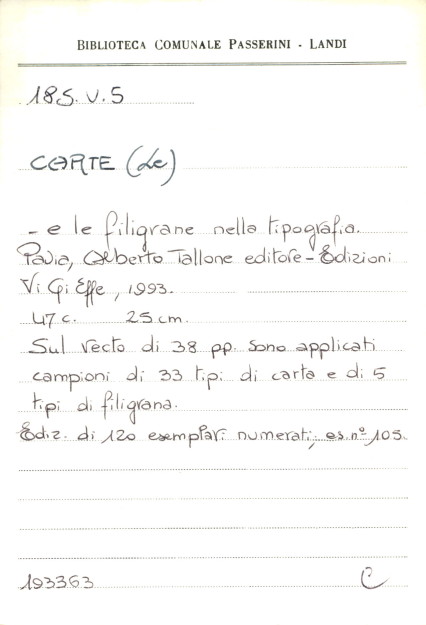 BIBLIOTECA COMUNALE PASSERINI - LANDI
185. V. 5
CARTE (Le)
- e le filigrane nella tipografia.
Pavia, Alberto Tallone editore - Edizioni
Vi Gi Effe, 1993.
47 c. 25 cm.
Sul recto di 38 pp. sono applicati
campioni di 33 tipi di carta e di 5
tipi di filigrana.
Ediz. di 120 esemplari numerati; es. nº 105.
193363 C